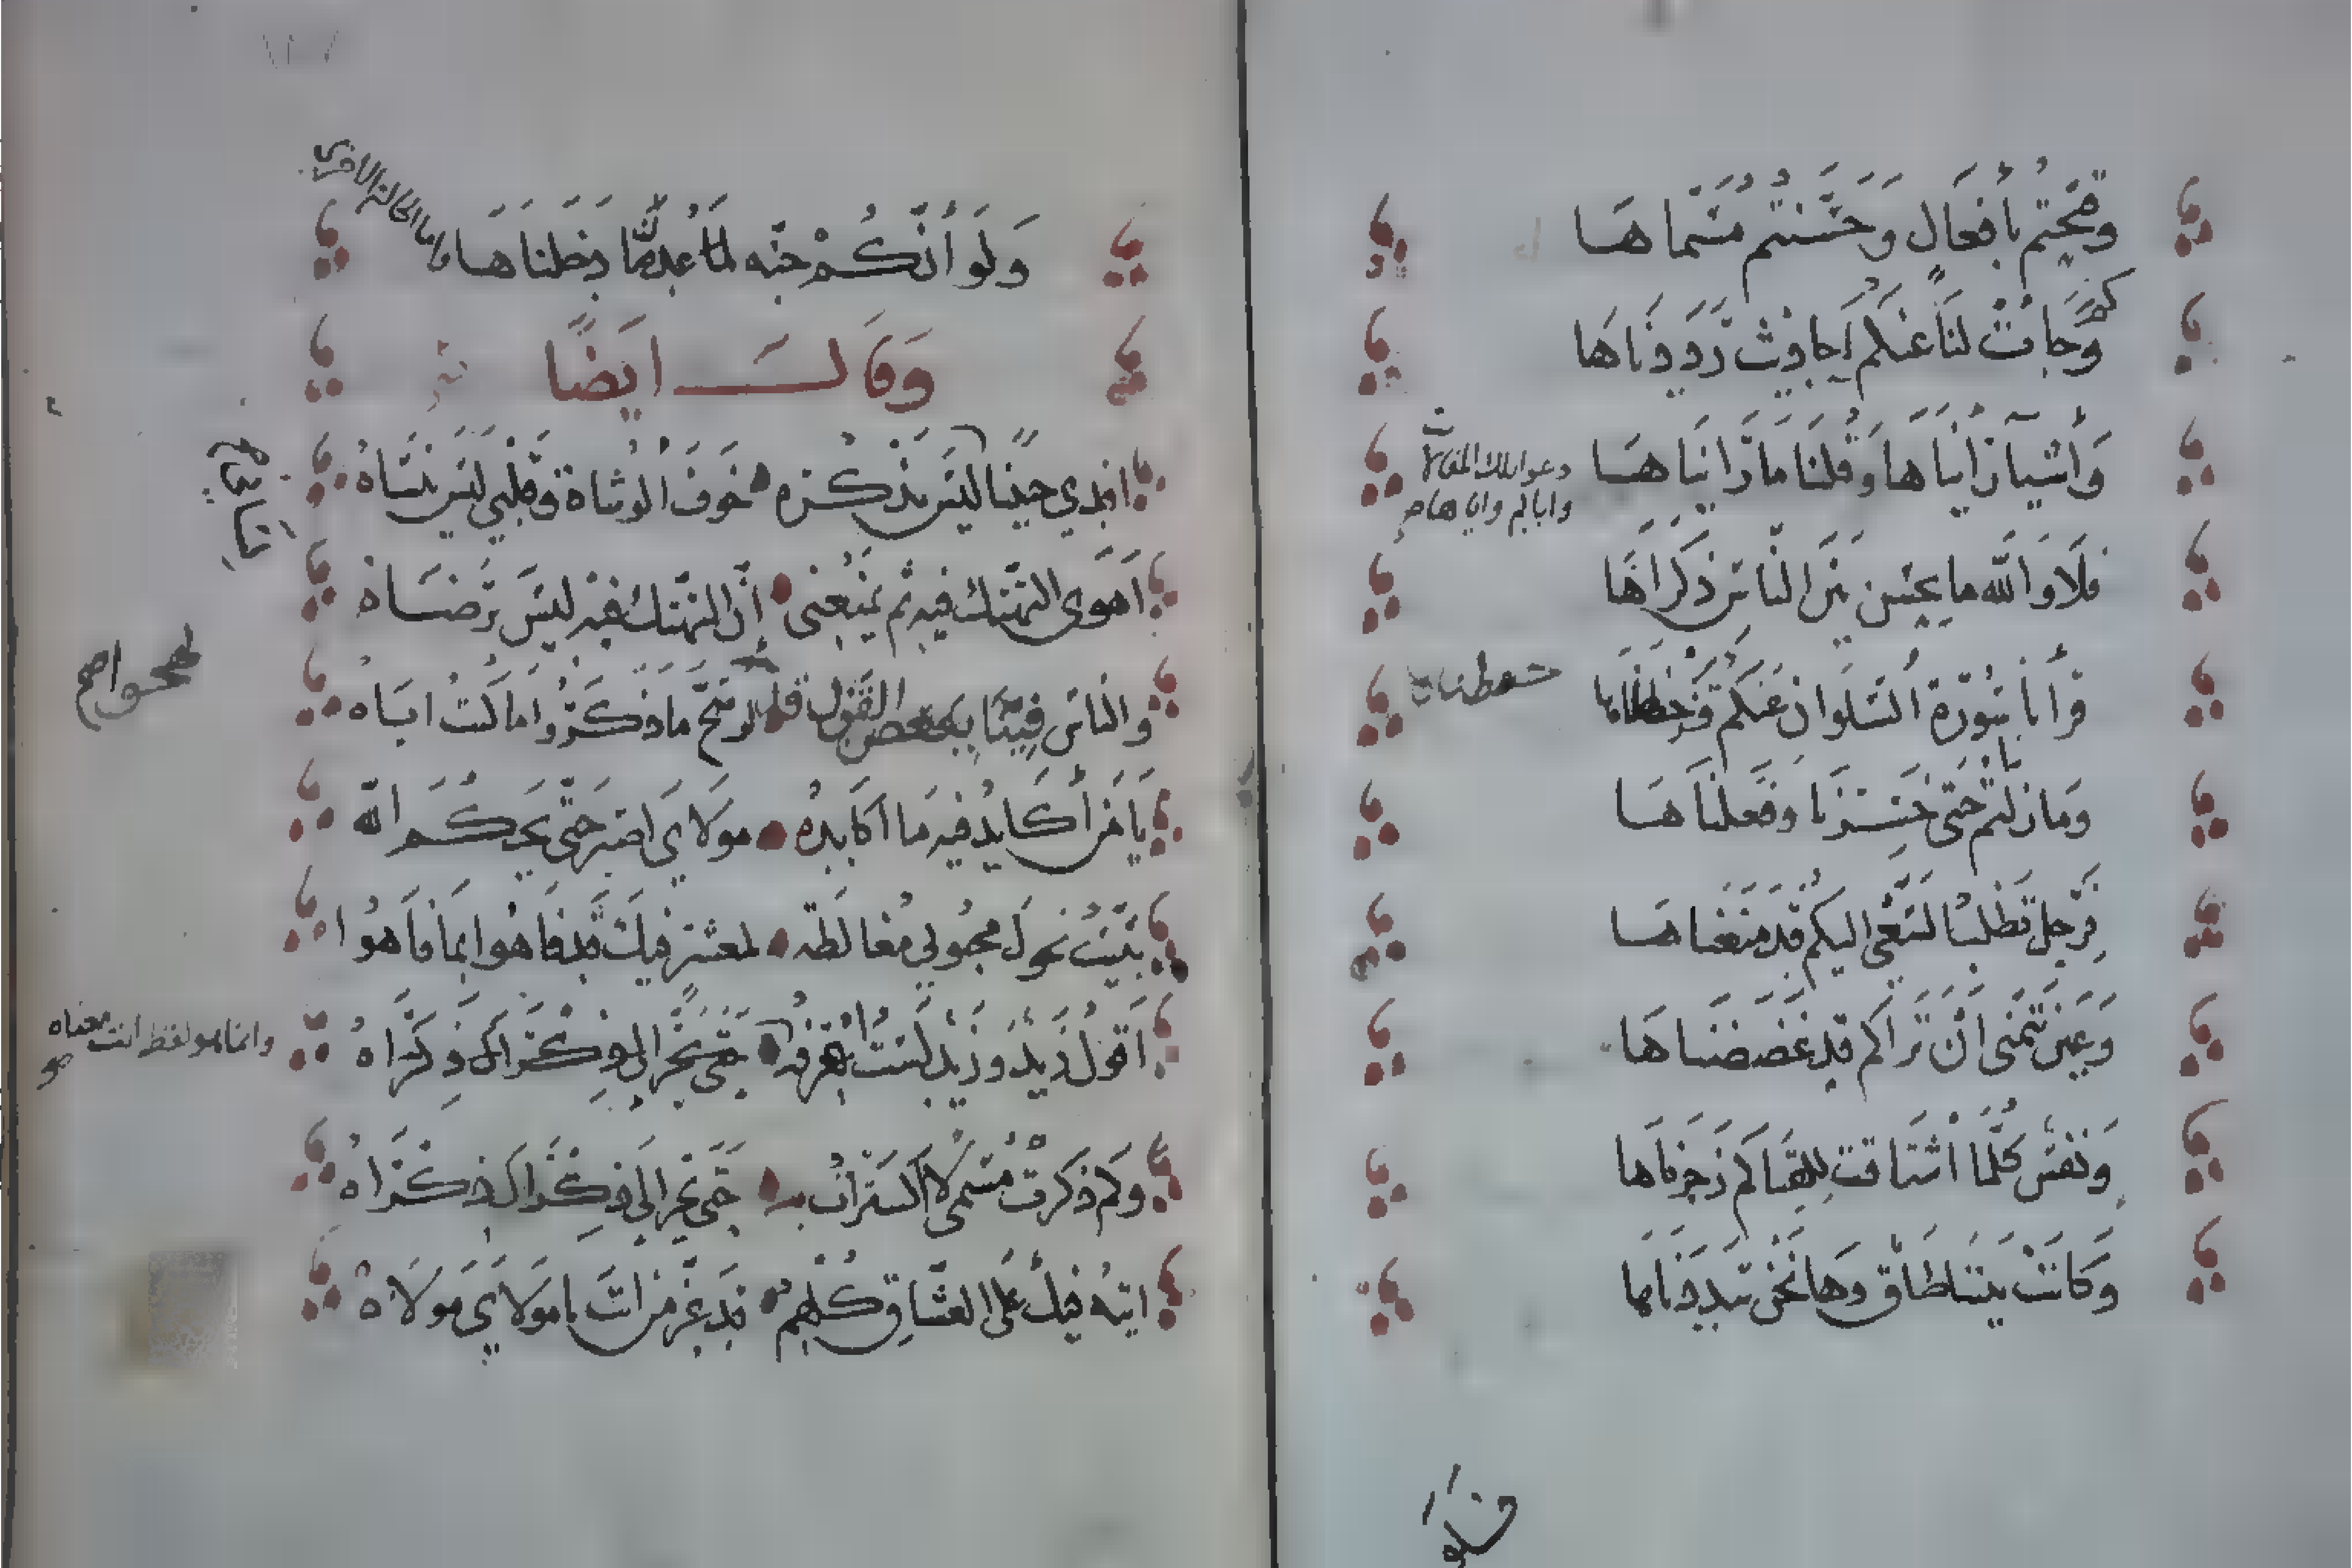 وقبحتم بأفعال وحسنتم مسماها
وجاءت لنا عنكم احاديث رددناها
وأشيا رأيناها وقلنا ما رأيناها
دعوا تلك المقالات
واياكم واياها صح
فلا والله ما يحسن بين الناس ذكراها
قرأنا سورة السلوان عنكم وحفظناها
حفظناها
وما زلتم بنا حتى خسرنا وفعلناها
فرجل تطلب السعي اليكم قد منعناها
وعين تتمنى أن تراكم قد غضضناها
ونفس كلما اشتاقت للقياكم زجرناها
وكانت بيننا طاق وها نحن سددناها
ولو أنكم جنة لما عدنا دخلناها
وقال ايضا
ابدي حديثا ليس بذكره خوف الوشاة وقلبي ليس ينساه
اهوى التهتك فيه ثم يمنعني إن التهتك فيه ليس يرضاه
والناس فينا ببعض القول قد لو صح ما ذكروا ما كنت اباه
يا من أكابد فيه ما اكابده مولاي اصبر حتى يحكم الله
سميت غيرك محبوبي مغالطة لمعشر فيك قد فاهوا بما فاهوا
اقول زيد وزيد لست أعرفه حتى يجر الى ذكراك ذكراه
وانما هو لفظ انت معناه
صح
وكم ذكرت مسمى لا اكتراث به حتى يجر الى ذكراك ذكراه
اتيه فيك على العشاق كلهم قد عز من انت يا مولاي مولاه